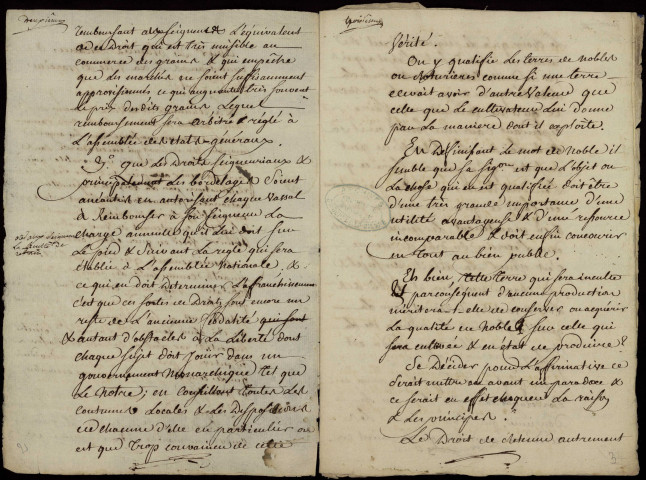 Deuxieme
remboursant au Seigneur L'équivalent
de ce Droit qui est très nuisible au
commerce des grains & qui empêche
que les marchés en soient suffisamment
approvisionnés ce qui augmente très souvent
le prix des dits grains Lequel
remboursement sera arbitré & réglé à
L'assemblée des etats généraux.
9.° que les Droits seigneuriaux &
principalement les bordelages Soient
aneantis en autorisant chaque Vassal
à Rembourser à son Seigneur La
charge annuelle qu'il Lui doit sur
Le pied & Suivant La regle qui sera
établie à L'assemblée Nationale, &
ce qui en doit Determiner L'affranchissement
c'est que ces sortes de Droits sont encore un
reste de L'ancienne féodalité qui sont
& autant d'obstacles à La Liberté dont
chaque sujet doit Jouir dans un
gouvernement Monarchique tel que
Le Notre; en consultant toutes Les
coutumes Locales & Les Dispositions
de chacune d'elle en particulier on
est que trop convaincu de cette
troisieme
Vérité.
On y qualifie les terres de nobles
ou Roturieres comme si une terre
devait avoir d'autre Valeur que
celle que Le cultivateur Lui donne
par La maniere dont il exploite.
En Définissant Le mot de Noble il
semble que sa signon est que L'objet ou
La chose qui en est qualifiée doit être
d'une très grande importance d'une
utilité avantageuse & d'une ressource
incomparable & doit enfin concourir
en tout au bien public.
Eh bien, cette terre qui sera inculte
& par conséquent d'aucune production
méritera t-elle de conserver ou acquérir
La qualité de Noble sur celle qui
sera cultivée & en état de produire?
Se Décider pour L'affirmative ce
serait mettre en avant un paradoxe &
ce serait en effet choquer La raison
& les principes.
Le Droit de Retenue autrement
3